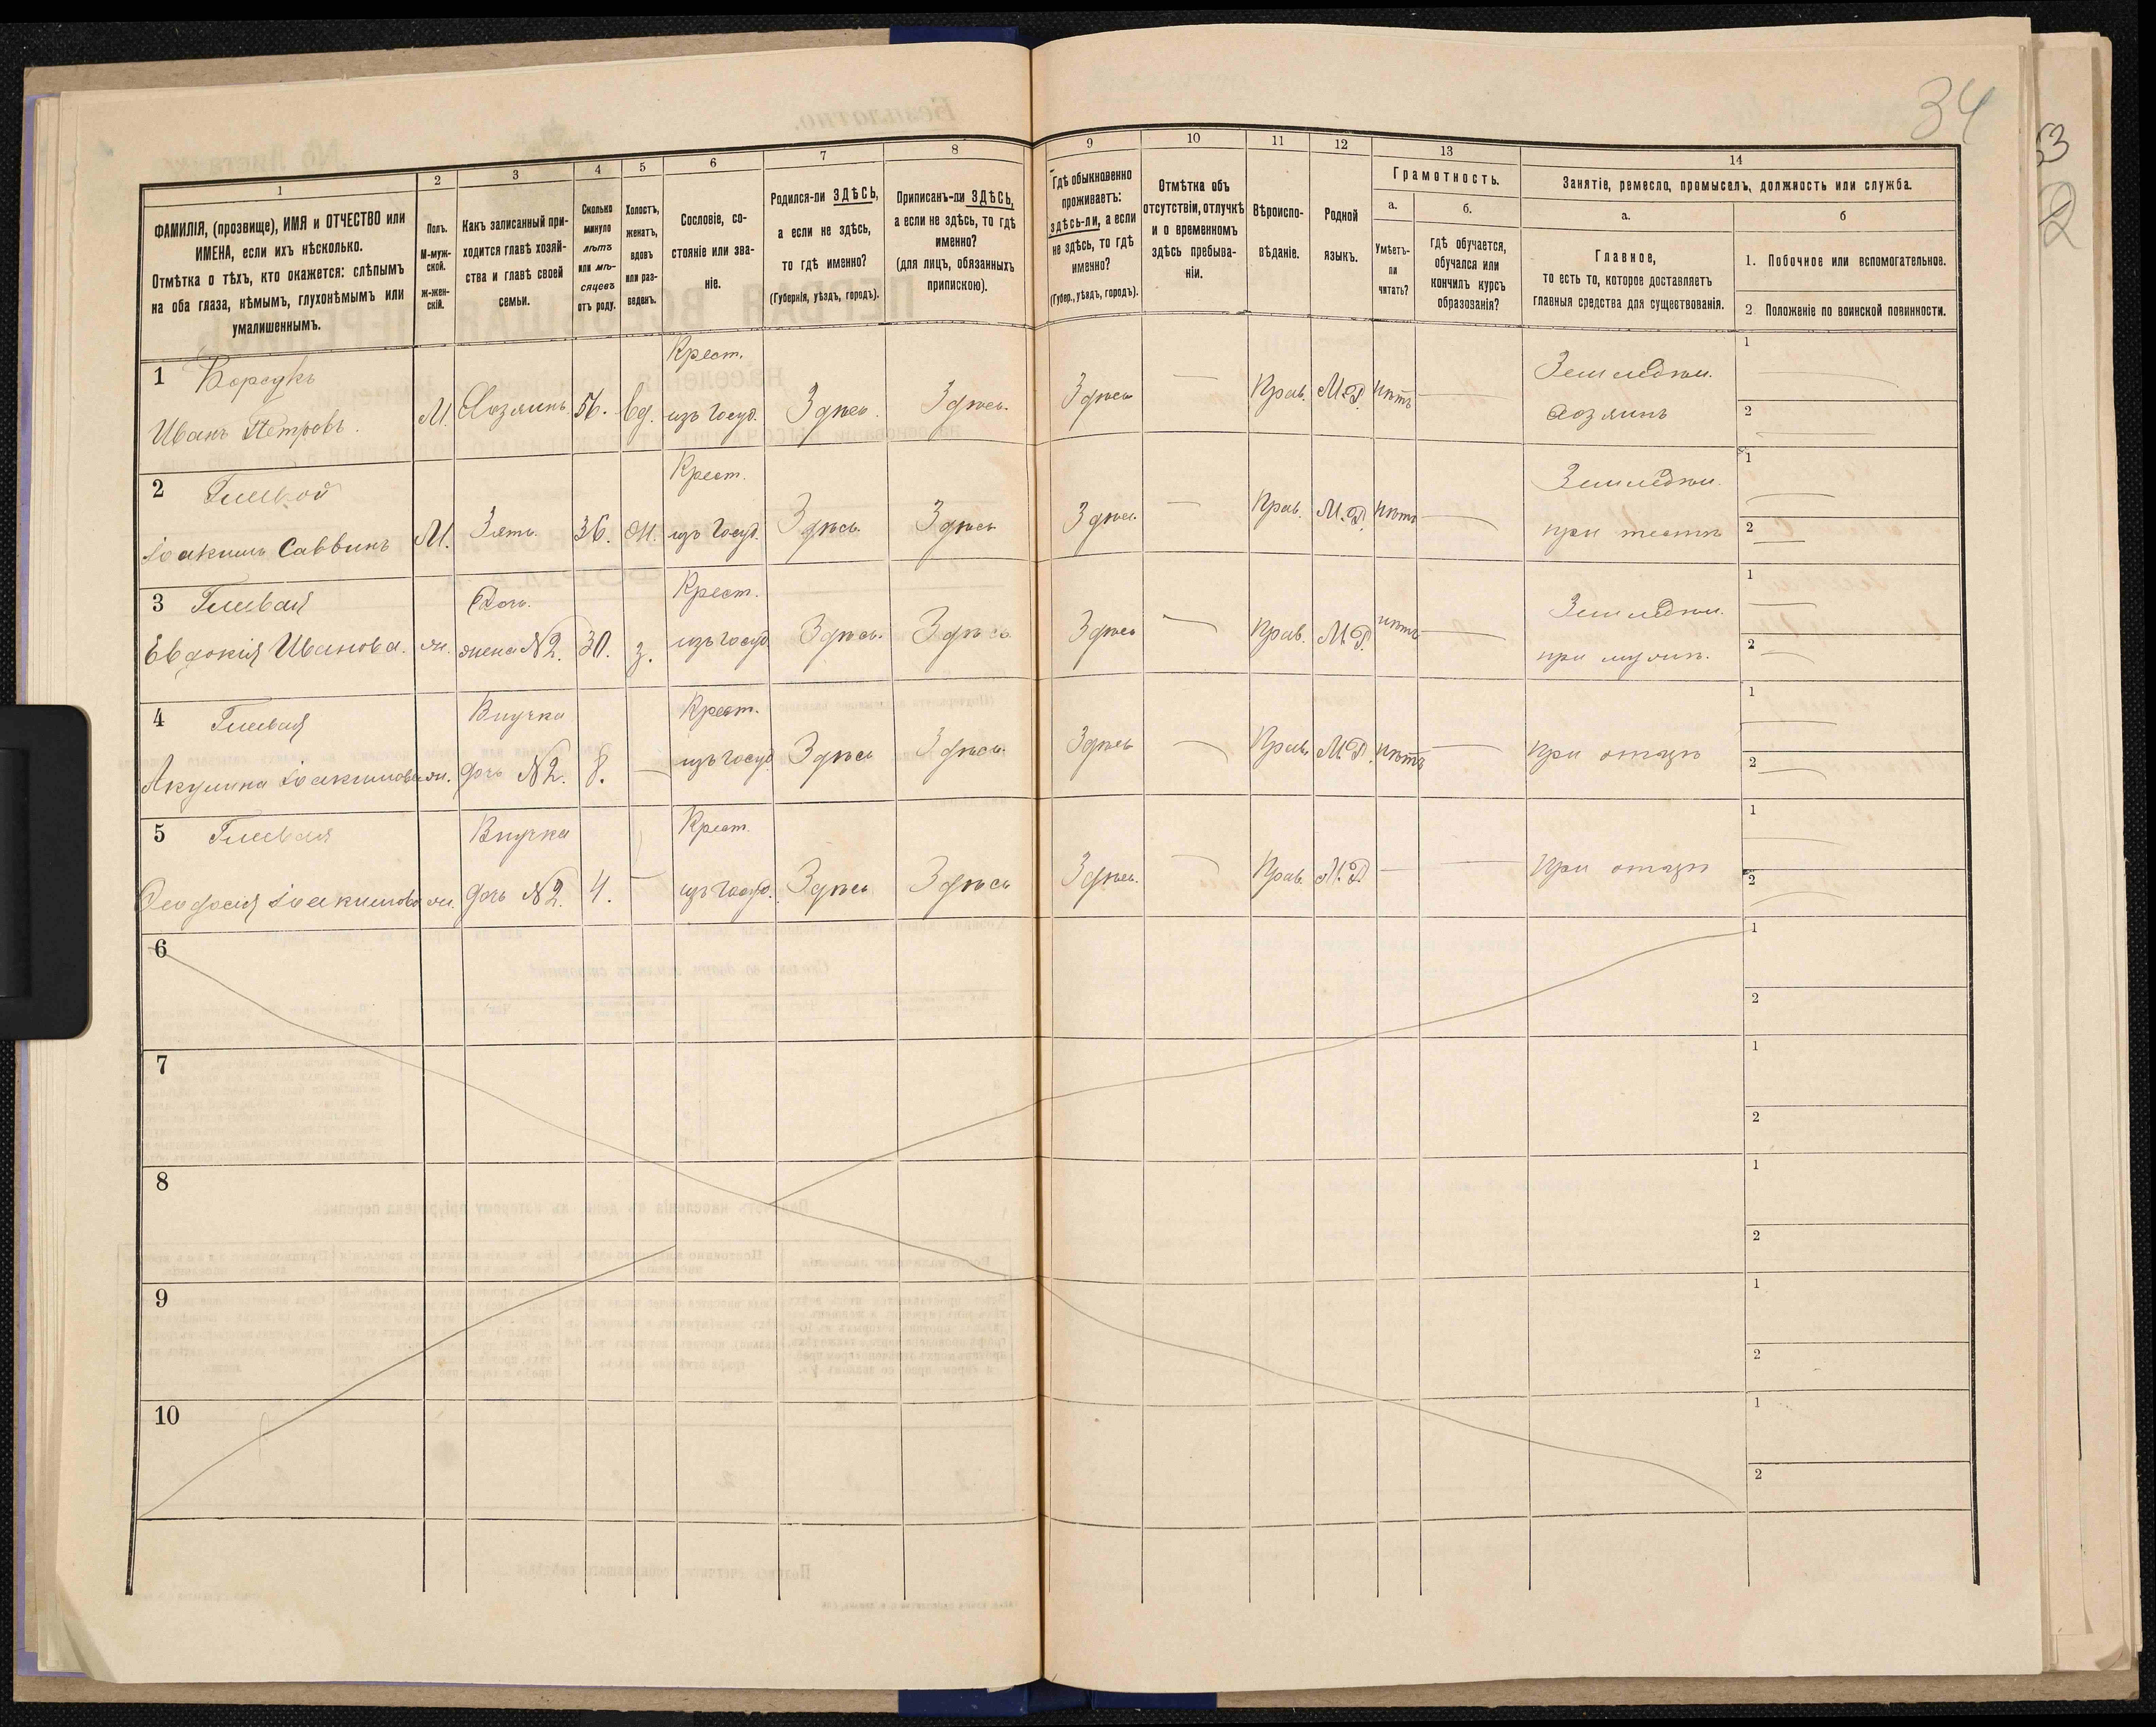 34
1 2 3 4 5 6 7 8 9 10 11 12 13 14
ФАМИЛІЯ, (прозвище), ИМЯ и ОТЧЕСТВО или
ИМЕНА, если ихъ нѣсколько.
Отмѣтка о тѣхъ, кто окажется: слѣпымъ
на оба глаза, нѣмымъ, глухонѣмымъ или
умалишеннымъ.
Полъ.
М-муж-
ской.
Ж-жен-
скій.
Какъ записанный при-
ходится главѣ хозяй-
ства и главѣ своей
семьи.
Сколько
минуло
лѣтъ
или мѣ-
сяцевъ
отъ роду.
Холостъ,
женатъ,
вдовъ
или раз-
веденъ.
Сословіе, со-
стояніе или зва-
ніе.
Родился-ли ЗДѢСЬ,
а если не здѣсь,
то гдѣ именно?
(Губернія, уѣздъ, городъ).
Приписанъ-ли ЗДѢСЬ,
а если не здѣсь, то гдѣ
именно?
(для лицъ, обязанныхъ
припискою).
Гдѣ обыкновенно
проживаетъ:
здѣсь-ли, а если
не здѣсь, то гдѣ
именно?
(Губер., уѣздъ, городъ).
Отмѣтка объ
отсутствіи, отлучкѣ
и о временномъ
здѣсь пребыва-
ніи.
Вѣроиспо-
вѣданіе.
Родной
языкъ.
Грамотность.
а.
Умѣетъ-
ли
читать?
б.
гдѣ обучается,
обучался или
кончилъ курсъ
образованія?
Занятіе, ремесло, промыселъ, должность или служба.
а.
Главное,
то есть то, которое доставляетъ
главныя средства для существованія.
б
1. Побочное или вспомогательное.
2 Положеніе по воинской повинности.
1 Борсукъ Крест. Земледѣл. 1
Иванъ Петровъ. М. Хозяинъ 56. вд. изъ госуд. Здѣсь. Здѣсь. Здѣсь — Прав. М.Р. нѣтъ — хозяинъ 2
2 Крест. Земледѣл. 1
Іоакимъ Саввинъ М. Зять. 36. ж. изъ госуд. Здѣсь. Здѣсь Здѣсь. — Прав. М.Р. нѣтъ — при тестѣ 2
3 Дочь. Крест. Земледѣл. 1
Евдокія Иванова. ж. жена №2. 30. з. изъ госуд. Здѣсь. Здѣсь Здѣсь — Прав. М.Р. нѣтъ — при мужѣ. 2
4 Внучка Крест. 1
Акулина Іоакимова ж. дочь №2. 8. — изъ госуд. Здѣсь Здѣсь. Здѣсь — Прав. М.Р. нѣтъ — при отцѣ 2
5 Внучка Крест. 1
Феодосія Іоакимова ж. дочь №2. 4. — изъ госуд. Здѣсь Здѣсь Здѣсь. — Прав. М.Р. — — при отцѣ 2
6 1
2
7 1
2
8 1
2
9 1
2
10 1
2